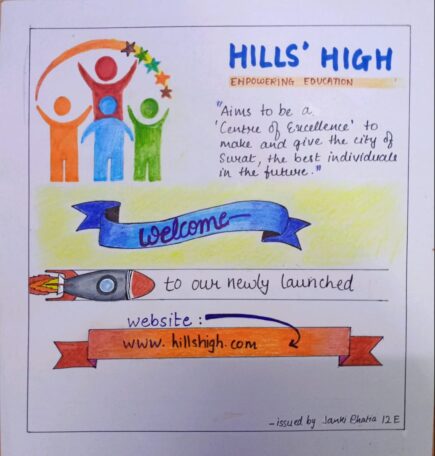 HILLS' HIGH
EMPOWERING EDUCATION
"Aims to be a
'Centre of Excellence' to
make and give the city of
Surat, the best individuals
in the future."
Welcome
to our newly launched
website :
www. hillshigh. com
- issued by Janki Bhatia 12 E